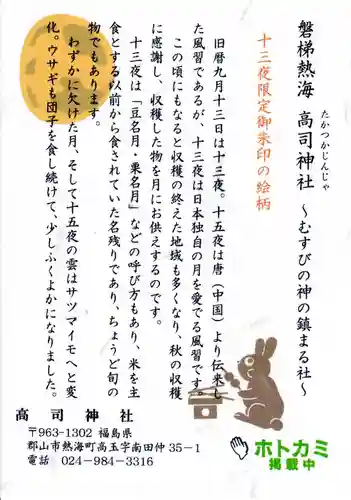 磐梯熱海 高司神社 ～むすびの神の鎮まる社～
たかつかじんじゃ
十三夜限定御朱印の絵柄
旧暦九月十三日は十三夜。十五夜は唐（中国）より伝来し
た風習であるが、十三夜は日本独自の月を愛でる風習です。
この頃にもなると収穫の終えた地域も多くなり、秋の収穫
に感謝し、収穫した物を月にお供えするのです。
十三夜は「豆名月・栗名月」などの呼び方もあり、米を主
食とする以前から食されていた名残りであり、ちょうど旬の
物でもあります。
わずかに欠けた月、そして十五夜の雲はサツマイモへと変
化。ウサギも団子を食し続けて、少しふくよかになりました。
高司神社
〒963-1302 福島県
郡山市熱海町高玉字南田仲 35－1
電話 024-984-3316
ホトカミ
掲載中